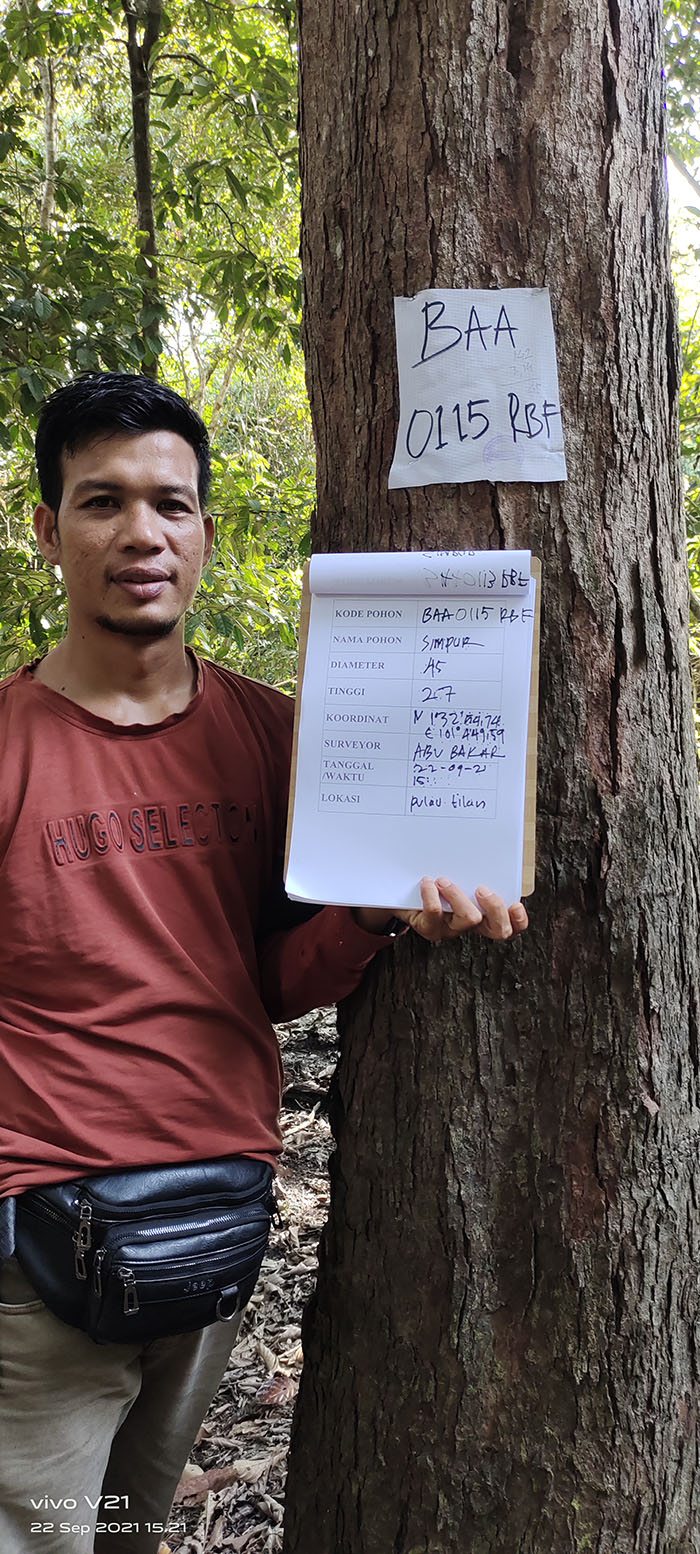 BAA
0115 RBF
KODE POHON BAA 0115 RBF
NAMA POHON SIMPUR
DIAMETER 45
TINGGI 27
KOORDINAT N 1°32'
E 101° 4'49,59
SURVEYOR ABU BAKAR
TANGGAL
/WAKTU 22-09-21
15::
LOKASI pulau tilan
HUGO SELECTION
Jeep
vivo V21
22 Sep 2021 15.21